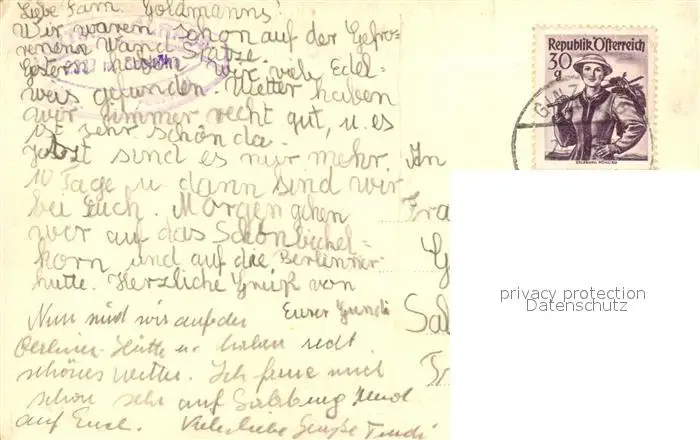 Liebe Fam. Goldmanns!
Wir waren schon auf der Gefro-
renenn Wand Spitze.
Gestern haben wir viele Edel-
weis gefunden. Wetter haben
wir immer recht gut, u. es
ist sehr schön da.
Jetzt sind es nur mehr
10 Tage u dann sind wir
bei Euch. Morgen gehen
wir auf das Schönbichel-
horn und auf die Berlinner-
hütte. Herzliche Grüße von
Eurer Gundi
Nun sind wir auf der
Berliner-Hütte u. haben recht
schönes Wetter. Ich freue mich
schon sehr auf Salzburg und
auf Euch. Viele liebe Grüße
An
Fra
G
Sal
Republik Österreich
30
g
privacy protection
Datenschutz